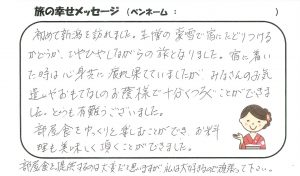 旅の幸せメッセージ（ペンネーム：　　　　）
初めて新潟を訪れました。生憎の豪雪で宿にたどりつける
かどうか、ひやひやしながらの旅となりました。宿に着い
た時は心身共に疲れ果てていましたが、みなさんのお気
遣いやおもてなしのお陰様で十分くつろぐことができま
した。とても有難うございました。
部屋食をゆっくりと楽しむことができ、お料
理も美味しく頂くことができました。
部屋食を提供するのは大変だと思いますが私は大好きなので頑張って下さい。